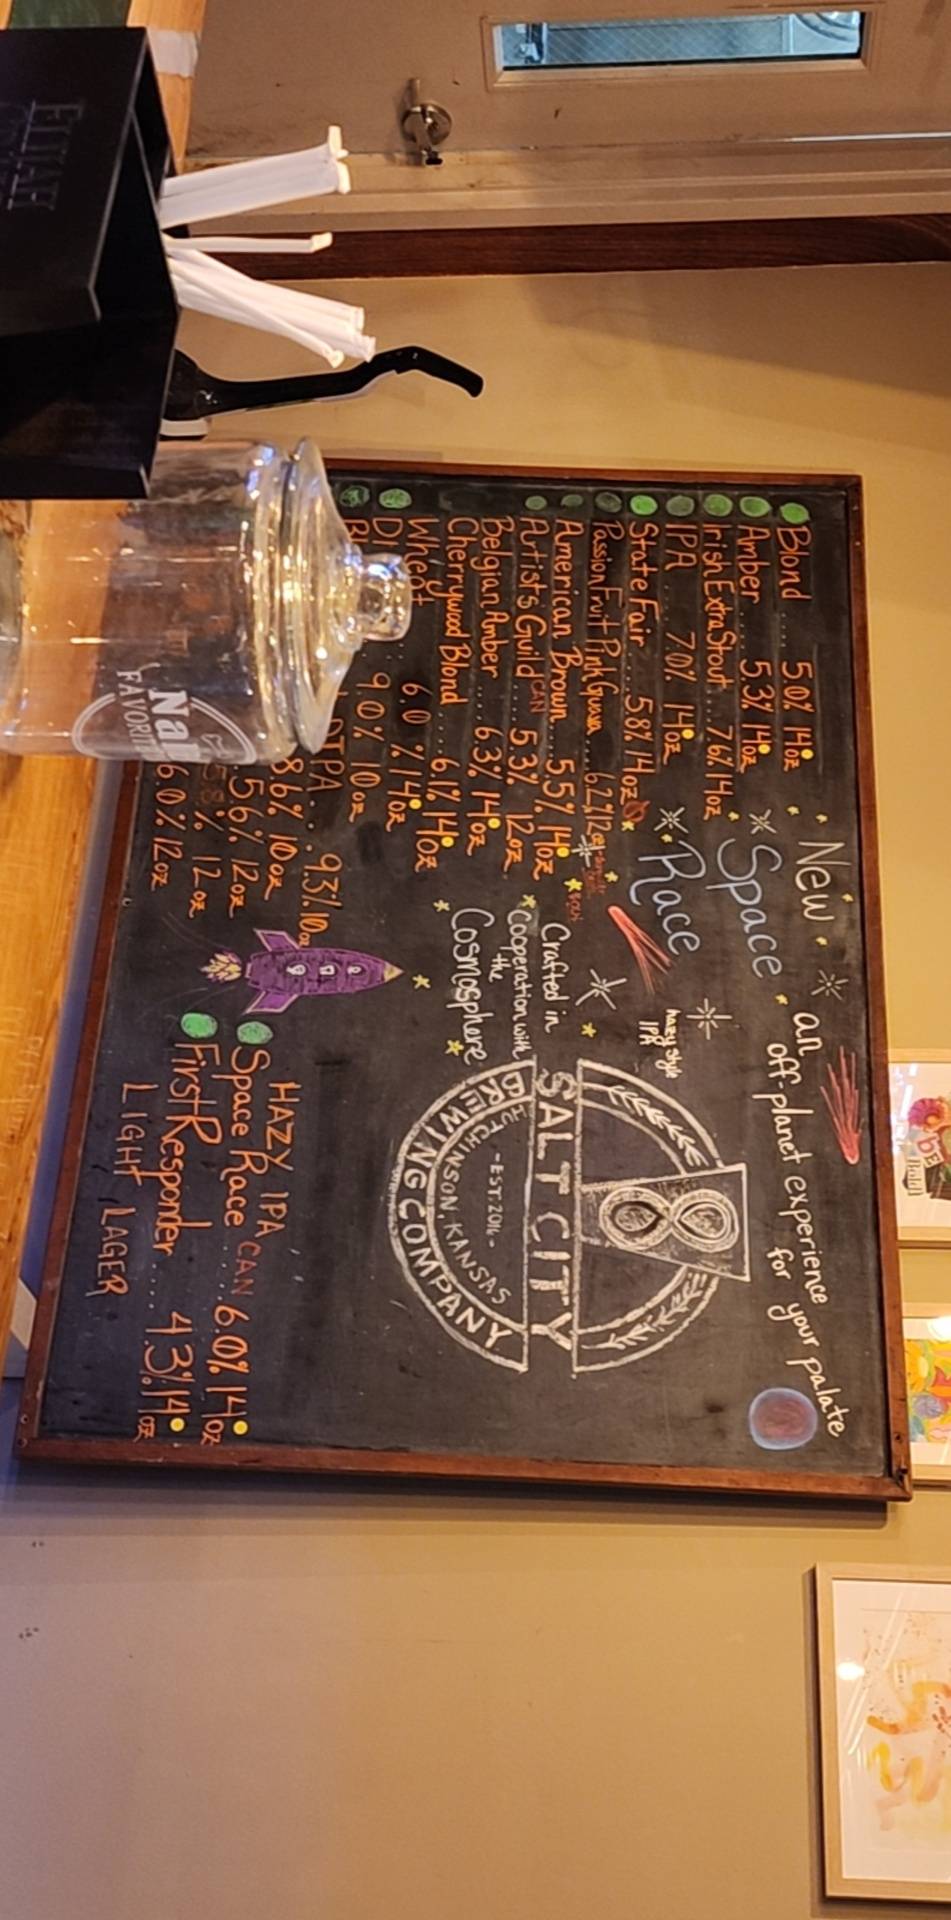 Blond .... 5.0% 14oz
Amber... 5.3% 14oz
Irish Extra Stout ... 7.6% 14oz
IPA ... 7.0% 14oz
State Fair ... 5.8% 14oz
Passion Fruit Pink Guava ... 6.2% 12oz
American Brown .... 5.5% 14oz
Artists Guild CAN .... 5.3% 12oz
Belgian Amber .... 6.3% 14oz
Cherrywood Blond ... 6.1% 14oz
Wheat ... 6.0 % 14oz
9.0% 10oz
DIPA . . . 9.3% 10oz
8.6% 10oz
5.6% 12oz
5.8% 12oz
6.0% 12oz
New
Space
Race
an
off-planet experience
for your palate
hazy style
IPA
Crafted in
Cooperation with
the
Cosmosphere
SALT CITY
-EST. 2016-
HUTCHINSON, KANSAS
BREWING COMPANY
HAZY IPA
Space Race CAN ..... 6.0% 14oz
First Responder ..... 4.3% 14oz
LIGHT LAGER
be
Bold!
Nal
FAVORIT
ELIJAH